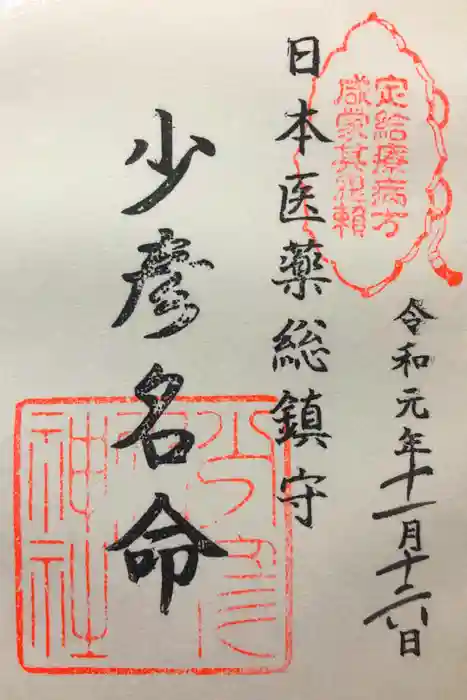 定療病方
咸蒙其頼
日本医薬総鎮守
少彦名命
令和元年十一月十六日
少彦
神社